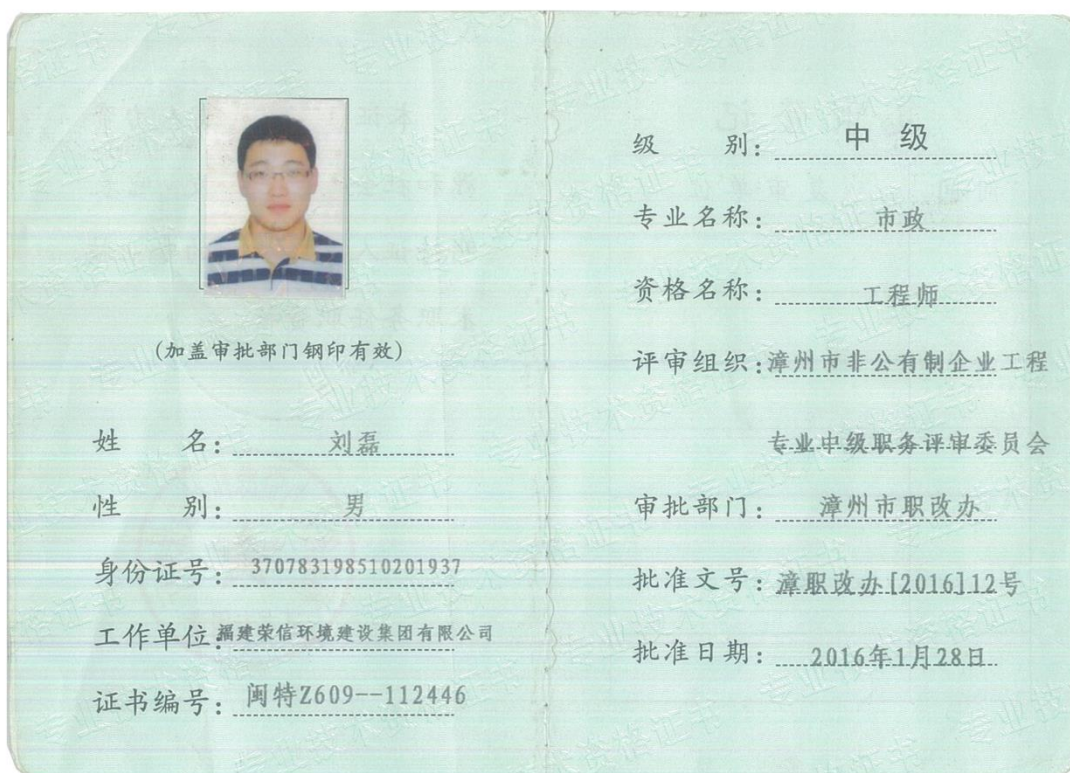 (加盖审批部门钢印有效)
姓 名: 刘磊
性 别: 男
身份证号: 370783198510201937
工作单位: 福建荣信环境建设集团有限公司
证书编号: 闽特Z609--112446
级 别: 中 级
专业名称: 市政
资格名称: 工程师
评审组织: 漳州市非公有制企业工程
专业中级职务评审委员会
审批部门: 漳州市职改办
批准文号: 漳职改办[2016]12号
批准日期: 2016年1月28日
专业技术资格证书